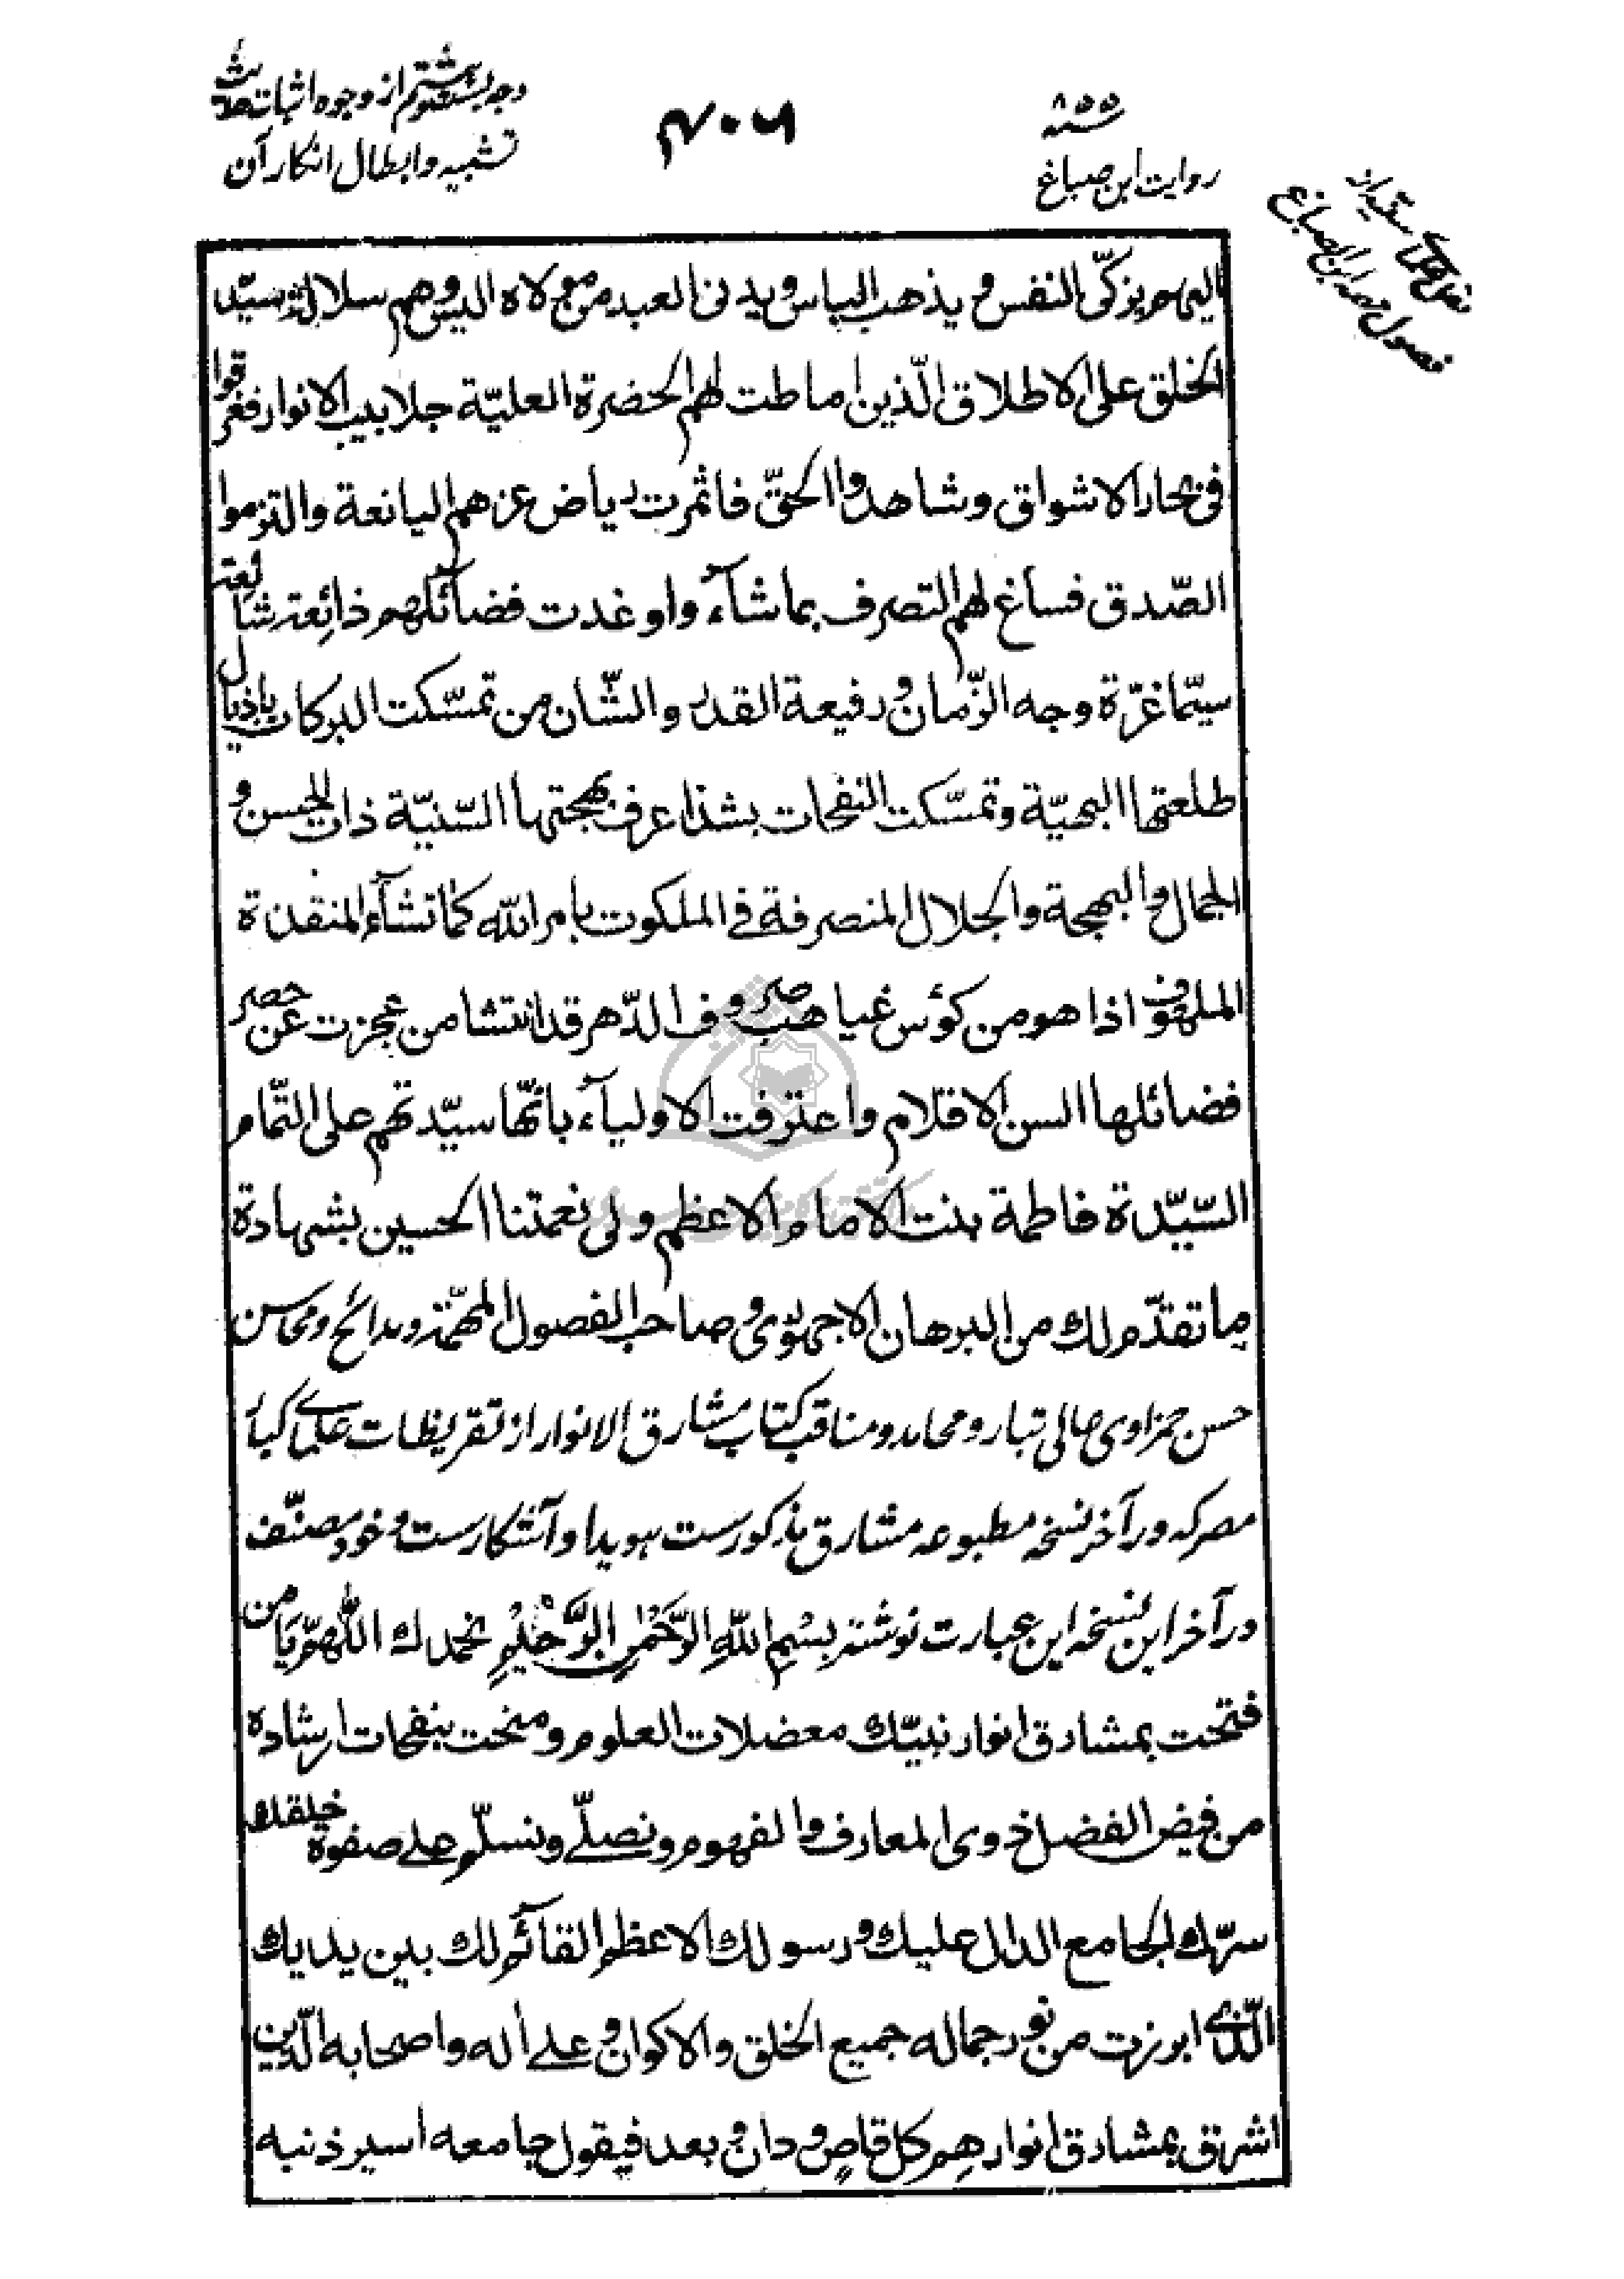 ۸۵۵ سنه
روایت ابن صباغ
۴۰۶
وجه بستم از وجوه اثبات حدیث
تشبیه و ابطال انکار آن
فصول مهمه ابن الصباغ
اليهم يزكّى النفس و يذهب الباس و يدنى العبد من مولاه اليس و هم سلالة سيّد
الخلق على الاطلاق الّذين اماطت لهم الحضرة العليّة جلابيب الانوار فغرقوا
فى بحار الاشواق و شاهدوا الحقّ فاثمرت رياض عزهم اليانعة و التزموا
الصّدق فساغ لهم التصرف بما شآءوا و غدت فضآئلهم ذائعة شائعة
سيّما غرّة وجه الزّمان و رفيعة القدر و الشّان من تمسّكت البركات باذيال
طلعتها البهيّة و تمسّكت النفحات بشذا عرف بهجتها السّنيّة ذات الحسن و
الجمال و البهجة و الجلال المتصرفة فى الملكوت بامر الله كما تشآء المنقذة
الملهوف اذا هو من كوٴس غياهب صروف الدّهر قد انتشا من عجزت عن حصر
فضائلها السن الاقلام و اعترفت الاوليآء بانّها سيّدتهم على التّمام
السّيّدة فاطمة بنت الامام الاعظم ولى نعمتنا الحسين بشهادة
ما تقدّم لك من البرهان الاجهورى و صاحب الفصول المهمّة و مدائح و محاسن
حسن حمزاوى عالى تبار و محامد و مناقب كتاب مشارق الانوار از تقريظات علماى كبار
مصر كه در آخر نسخه مطبوعه مشارق مذكورست هويدا و آشكارست و خود مصنّف
در آخر اين نسخه اين عبارت نوشته بِسْمِ اللهِ الرَّحْمٰنِ الرَّحِيْمِ نحمدك اللّهمّ يا من
فتحت بمشارق انوار نبيّك معضلات العلوم و منحت بنفحات ارشاده
من فيض الفضل ذوى المعارف و الفهوم و نصلّى و نسلّم على صفوة خلقك
سرّك الجامع الدال عليك و رسولك الاعظم القآئم لك بين يديك
الّذى ابرزت من نور جماله جميع الخلق و الاكوان و على اله و اصحابه الّذين
اشرق بمشارق انوارهم كل قاص و دان و بعد فيقول جامعه اسير ذنبه